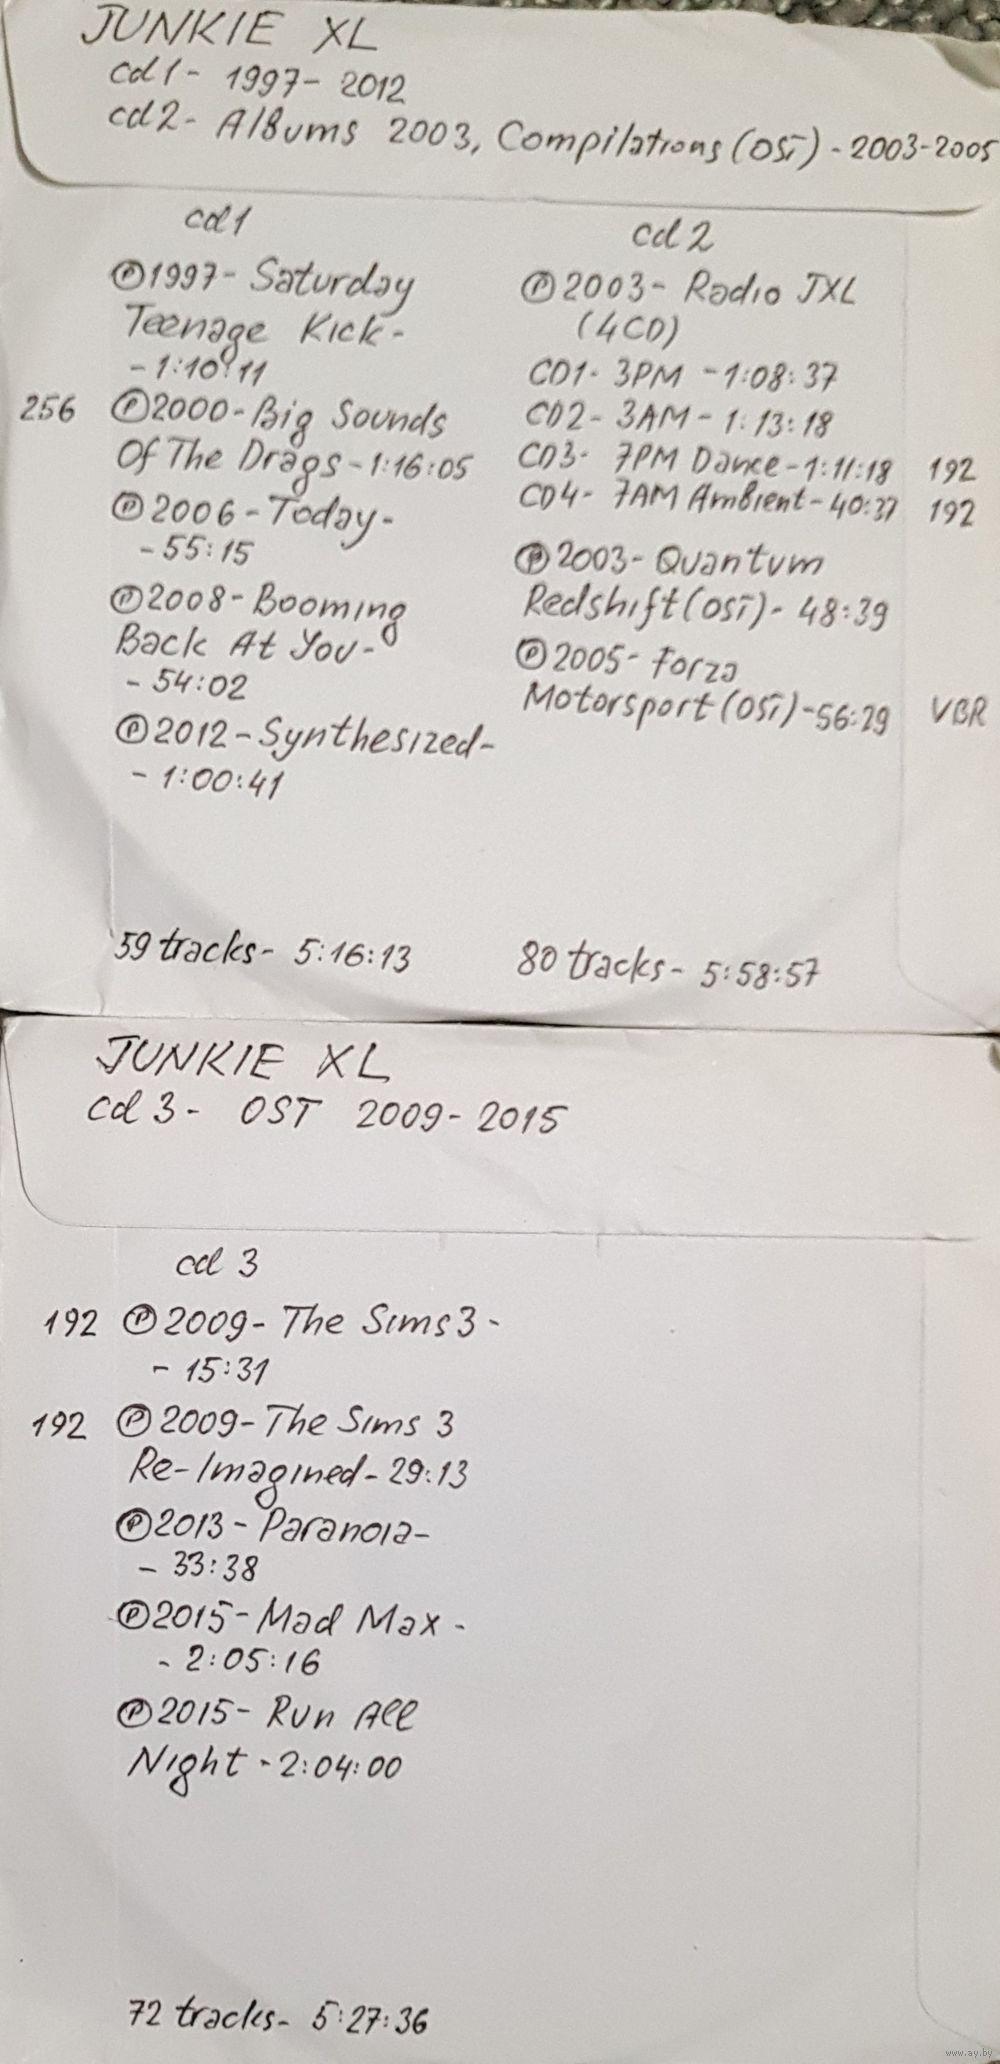 JUNKIE XL
cd1- 1997- 2012
cd2- Albums 2003, Compilations (OST) - 2003-2005
cd1
Ⓟ1997- Saturday
Teenage Kick-
- 1:10:11
256 Ⓟ2000- Big Sounds
Of The Drags - 1:16:05
Ⓟ2006 - Today-
- 55:15
Ⓟ2008- Booming
Back At You-
- 54:02
Ⓟ2012 - Synthesized-
- 1:00:41
59 tracks- 5:16:13
cd2
Ⓟ2003- Radio JXL
(4CD)
CD1- 3PM - 1:08:37
CD2- 3AM - 1:13:18
CD3- 7PM Dance - 1:11:18 192
CD4- 7AM Ambient - 40:37 192
Ⓟ2003- Quantum
Redshift (OST) - 48:39
Ⓟ2005- Forza
Motorsport (OST) - 56:29 VBR
80 tracks- 5:58:57
JUNKIE XL
cd 3- OST 2009- 2015
cd 3
192 Ⓟ2009- The Sims3 -
- 15:31
192 Ⓟ2009- The Sims 3
Re-Imagined - 29:13
Ⓟ2013 - Paranoia-
- 33:38
Ⓟ2015- Mad Max -
- 2:05:16
Ⓟ2015- Run All
Night - 2:04:00
72 tracks- 5:27:36
www.ay.by